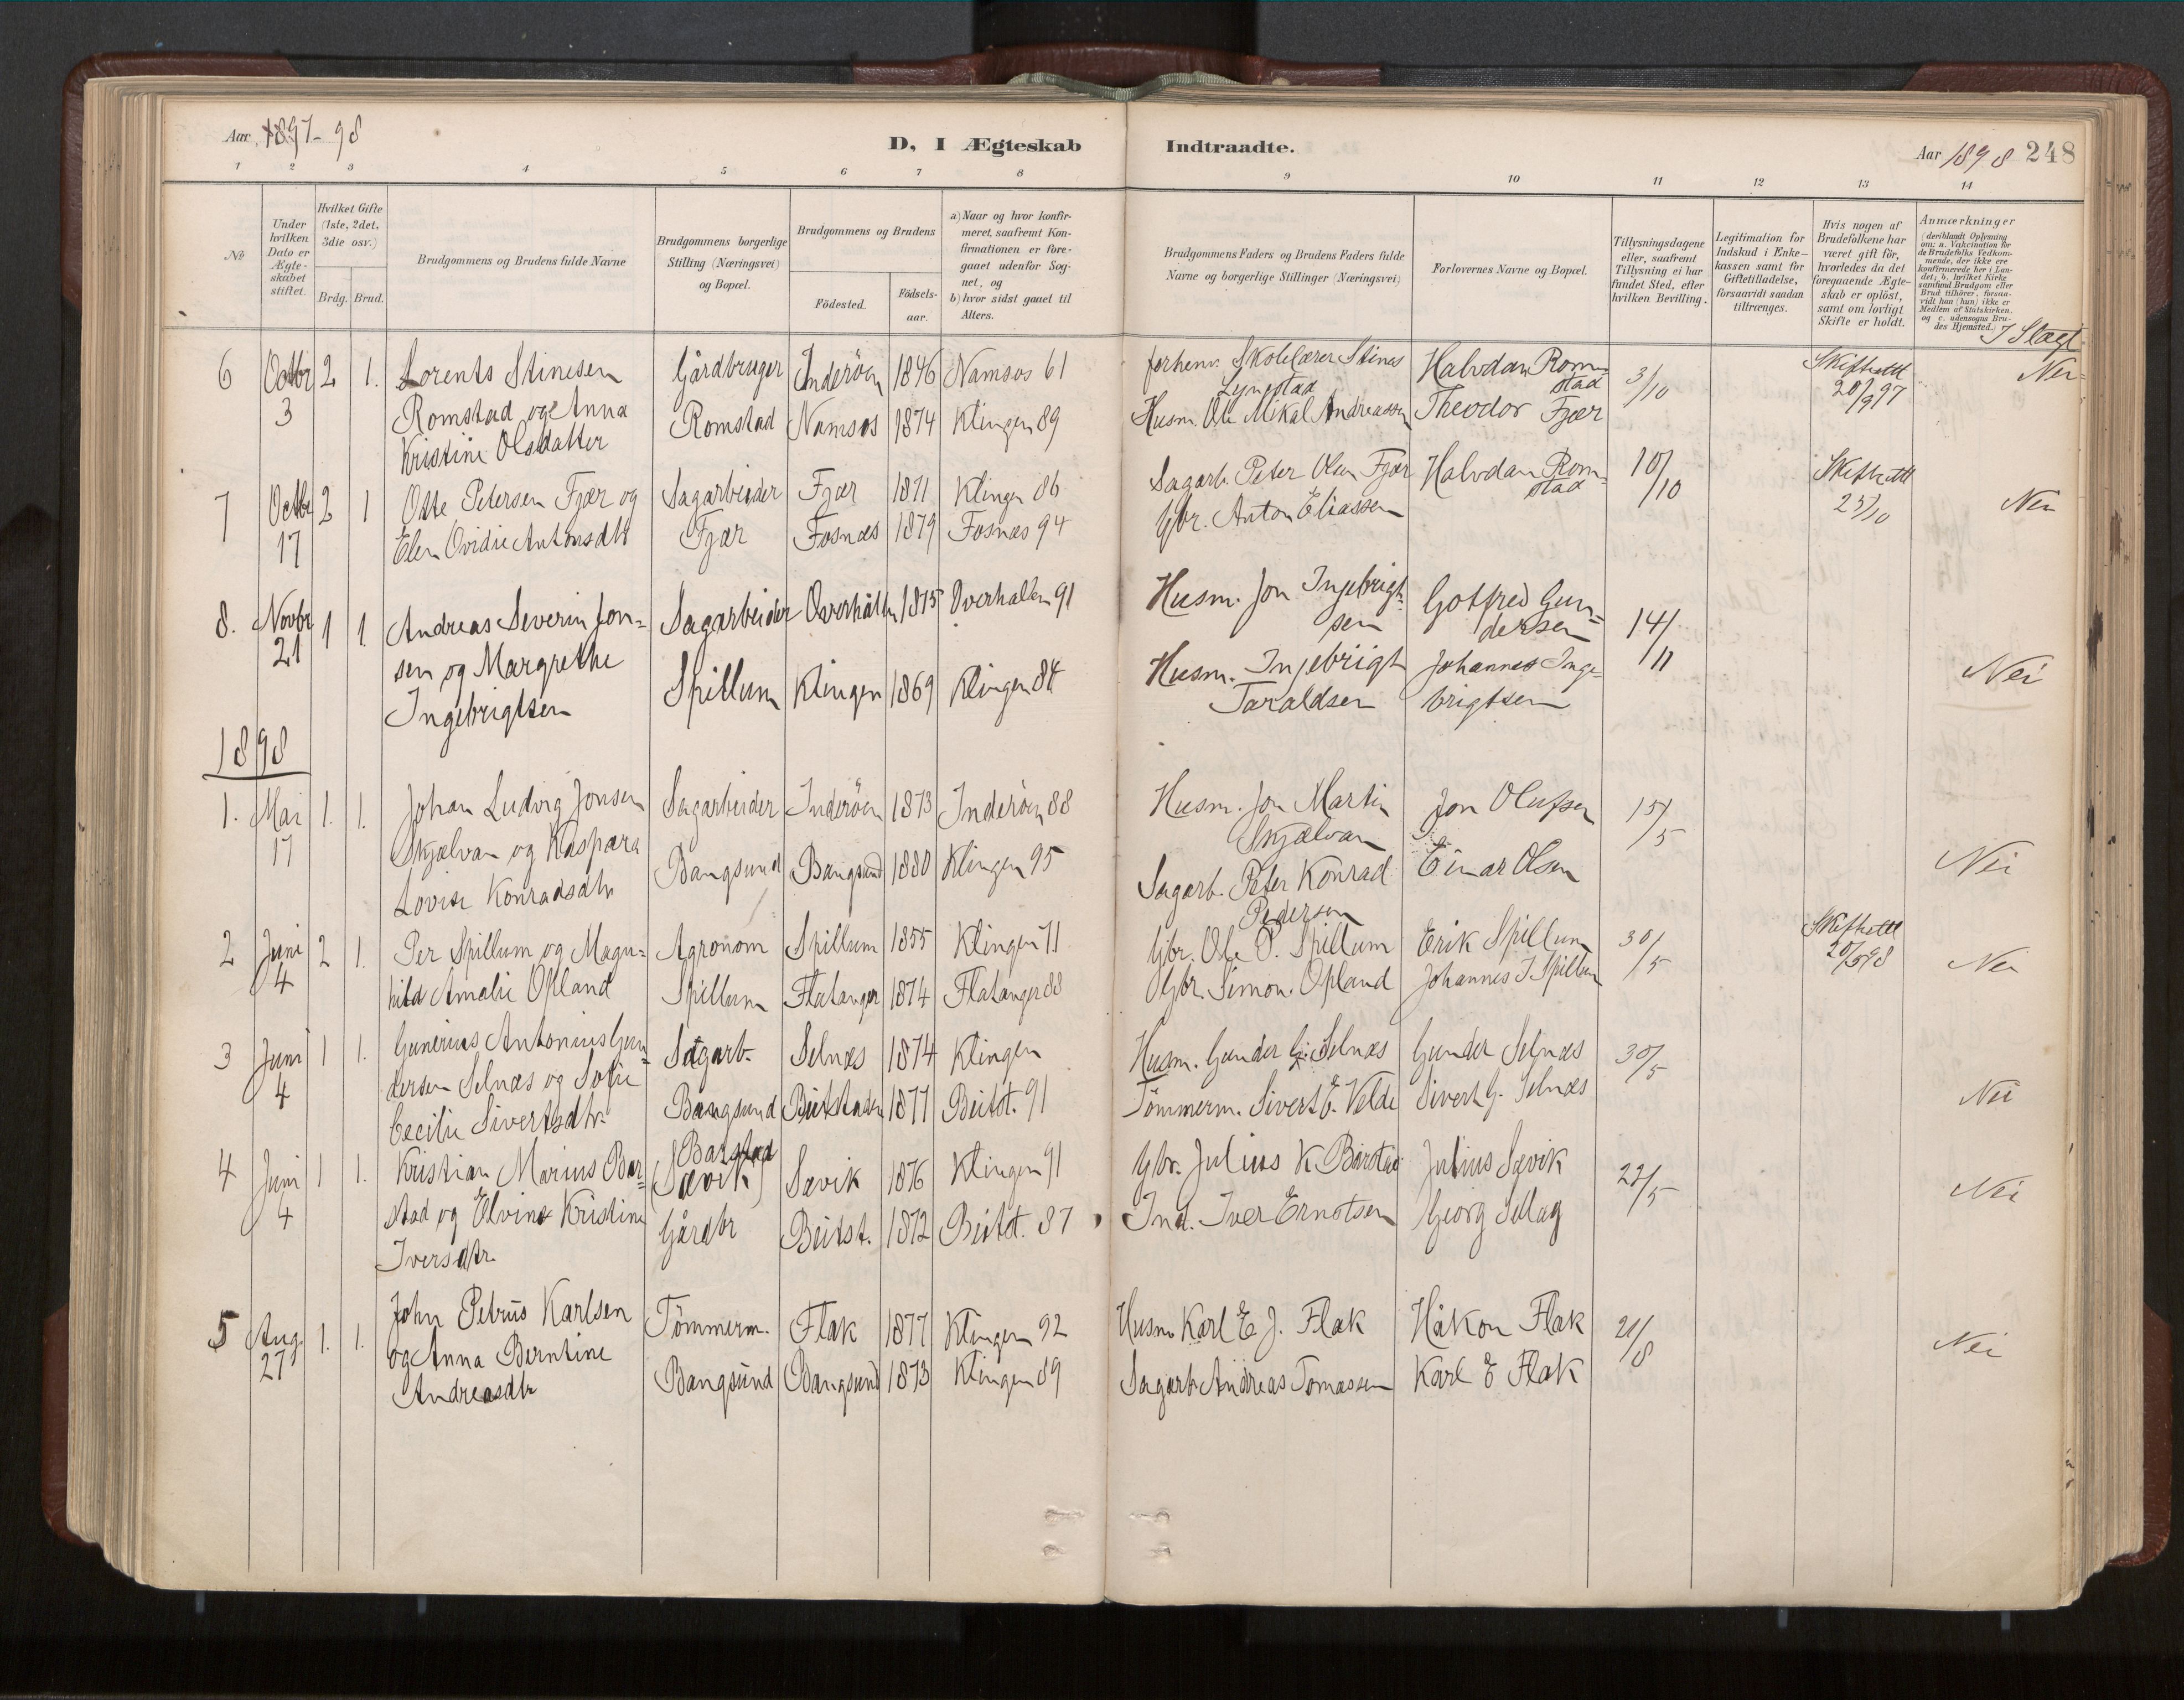 Aar 1897-98
D, I Ægteskab Indtraadte.
Aar 1898 248
1 2 3 4 5 6 7 8 9 10 11 12 13 14
No
Under hvilken Dato er Ægteskabet stiftet.
Hvilket Gifte (1ste, 2det, 3die osv.)
Brdg. Brud.
Brudgommens og Brudens fulde Navne
Brudgommens borgerlige Stilling (Næringsvei) og Bopæl.
Brudgommens og Brudens
Födested.
Födsels-aar.
a) Naar og hvor konfir-
meret, saafremt Kon-
firmationen er fore-
gaaet udenfor Sog-
net, og
b) hvor sidst gaaet til
Alters.
Brudgommens Faders og Brudens Faders fulde
Navne og borgerlige Stillinger (Næringsvei)
Forlovernes Navne og Bopæl.
Tillysningsdagene
eller, saafremt
Tillysning ei har
fundet Sted, efter
hvilken Bevilling.
Legitimation for
Indskud i Enke-
kassen samt for
Giftetilladelse,
forsaavidt saadan
tiltrænges.
Hvis nogen af
Brudefolkene har
været gift för,
hvorledes da det
foregaaende Ægte-
skab er oplöst,
samt om lovligt
Skifte er holdt.
Anmærkninger
(deriblandt Oplysning
om: a. Vakcination for
de Brudefolks Vedkom-
mende, der ikke ere
konfirmerede her i Lan-
det; b. hvilket Kirke
samfund Brudgom eller
Brud tilhörer, forsaa-
vidt han (hun) ikke er
Medlem af Statskirken,
og c. udensogns Bru-
des Hjemsted.)
I Slægt
6 Octbr 2 1. Lorents Stinesen Gårdbruger Inderöen 1846 Namsos 61 forhenv. Skolelærer Stines Halvdan Rom- 3/10 Skifteatt Nei
3 Romstad og Anna Romstad Namsos 1874 Klingen 89 Lyngstad stad 20/9 97
Kristine Olsdatter Husm. Ole Mikal Andreassen Theodor Fjær
7 Octbr 2 1 Otte Petersen Fjær og Sagarbeider Fjær 1871 Klingen 86 Sagarb. Peter Olsen Fjær Halvdan Rom- 10/10 Skifteatt Nei
17 Elen Ovidie Antonsdtr Fjær Fosnæs 1879 Fosnæs 94 Gbr. Anton Eliassen stad 25/10
8. Novbr 1 1. Andreas Severin Jon- Sagarbeider Overhallen 1875 Overhallen 91 Husm. Jon Ingebrigt- Gotfred Gun- 14/11
21 sen og Margrethe Spillum Klingen 1869 Klingen 84 sen dersen
Ingebrigtsen Husm. Ingebrigt Johannes Inge- Nei
Taraldsen brigtsen
1898
1. Mai 1. 1. Johan Ludvig Jonsen Sagarbeider Inderöen 1873 Inderöen 88 Husm. Jon Martin Jon Olufsen 15/5
17 Skjælvan og Kaspara Bangsund Bangsund 1880 Klingen 95 Skjælvan Einar Olsen Nei
Lovise Konradsdtr Sagarb. Peter Konrad
Pedersen
2 Juni 2 1. Per Spillum og Magn- Agronom Spillum 1855 Klingen 71 Gbr. Ole P. Spillum Erik Spillum 30/5 Skifteatt
4 hild Amalie Opland Spillum Flatanger 1874 Flatanger 88 Gbr. Simon Opland Johannes I Spillum 20/5 98 Nei
3 Juni 1 1. Gunerius Antonius Gun- Sagarb. Selnæs 1874 Klingen Husm. Gunder G. Selnæs Gunder Selnæs 30/5
4 dersen Selnæs og Sofie Bangsund Beitstaden 1877 Beitst. 91 Tömmerm. Sivert E. Velde Sivert G. Selnæs Nei
Cecilie Sivertsdtr.
4 Juni 1 1. Kristian Marius Bar- Barstad Sævik 1876 Klingen 91 Gbr. Julius K Barstad Julius Sævik 22/5 Nei
4 stad og Elvine Kristine (Sævik) Beitst. 1872 Beitst. 87 Ind. Iver Erntsen Georg Sellæg
Iversdtr. Gårdbr
5 Aug. 1. 1. John Petrus Karlsen Tömmerm. Flak 1877 Klingen 92 Husm Karl E J. Flak Håkon Flak 21/8 Nei
27 og Anna Berntine Bangsund Bangsund 1873 Klingen 89 Sagarb Andreas Tomassen Karl E Flak
Andreasdtr